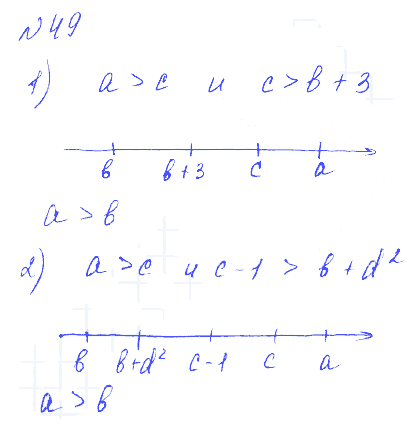 №49
1) a > c и c > b + 3
b b+3 c a
a > b
2) a > c и c - 1 > b + d²
b b+d² c-1 c a
a > b